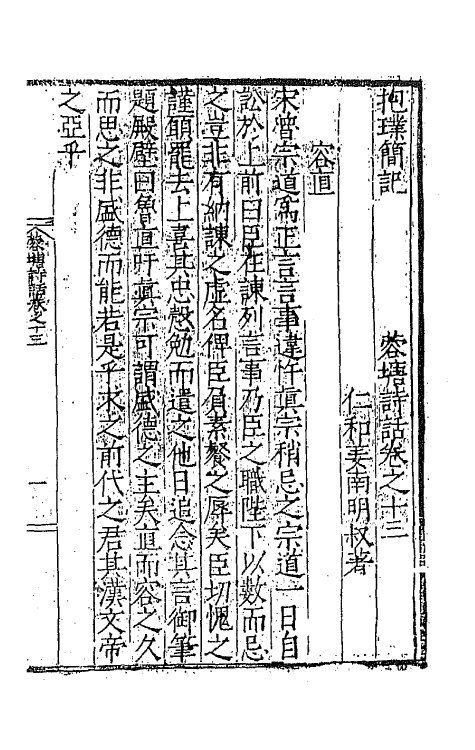 抱璞簡記　　　　蓉塘詩話卷之十三
仁和姜南明叔著
容直
宋曾宗道爲正言言事違忤眞宗稍忌之宗道一日自
訟於上前曰臣在諫列言事乃臣之職陛下以數而忌
之豈非有納諫之虛名俾臣負素餐之辱矣臣切愧之
謹願罷去上喜其忠慤勉而遣之他日追念其言御筆
題殿壁曰魯直吁眞宗可謂盛德之主矣直而容之久
而思之非盛德而能若是乎求之前代之君其漢文帝
之亞乎
蓉塘詩話卷之十三
一